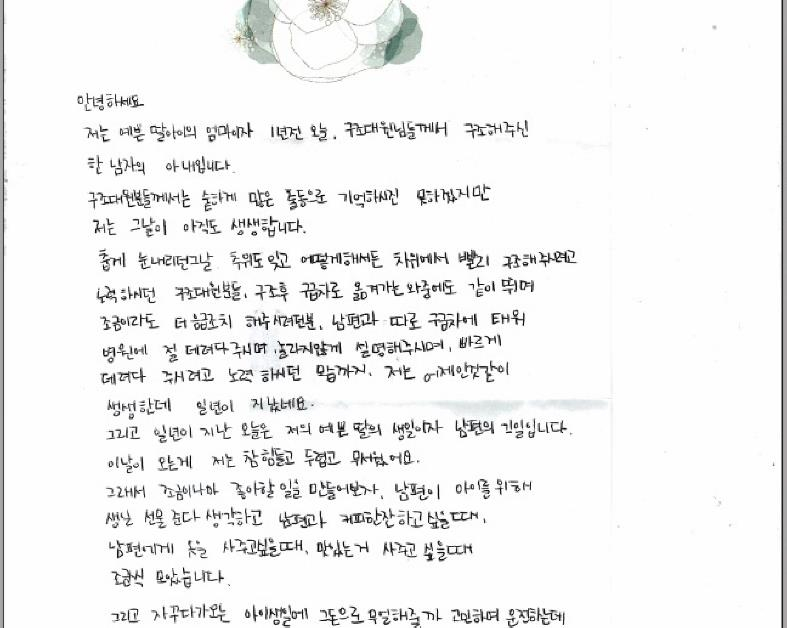 안녕하세요
저는 예쁜 딸아이의 엄마이자 1년전 오늘, 구조대원님들께서 구조해주신
한 남자의 아내입니다.
구조대원분들께서는 숱하게 많은 출동으로 기억하시진 못하겠지만
저는 그날이 아직도 생생합니다.
춥게 눈내리던그날 추위도 잊고 어떻게해서든 차위에서 빨리 구조해주시려고
노력하시던 구조대원분들, 구조후 구급차로 옮겨가는 와중에도 같이 뛰며
조금이라도 더 응급조치 해주시려던분, 남편과 따로 구급차에 태워
병원에 절 데려다주시며, 놀라지않게 설명해주시며, 빠르게
데려다 주시려고 노력하시던 모습까지. 저는 어제인것같이
생생한데 일년이 지났네요.
그리고 일년이 지난 오늘은 저의 예쁜 딸의 생일이자 남편의 기일입니다.
이날이 오는게 저는 참 힘들고 두렵고 무서웠어요.
그래서 조금이나마 좋아할 일을 만들어보자, 남편이 아이를 위해
생일 선물 준다 생각하고 남편과 커피한잔하고싶을때,
남편에게 옷을 사주고싶을때, 맛있는거 사주고 싶을때
조금씩 모았습니다.
그리고 자꾸다가오는 아이생일에 그돈으로 무얼해줄까 고민하며 운전하는데